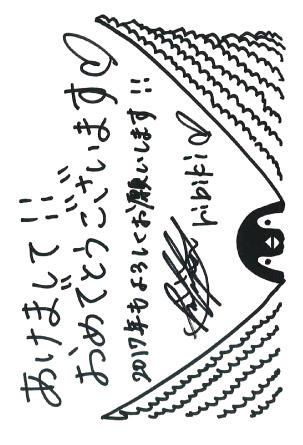 あけまして!!
おめでとうございます♡
2017年もよろしくお願いします!!
hibiki♡